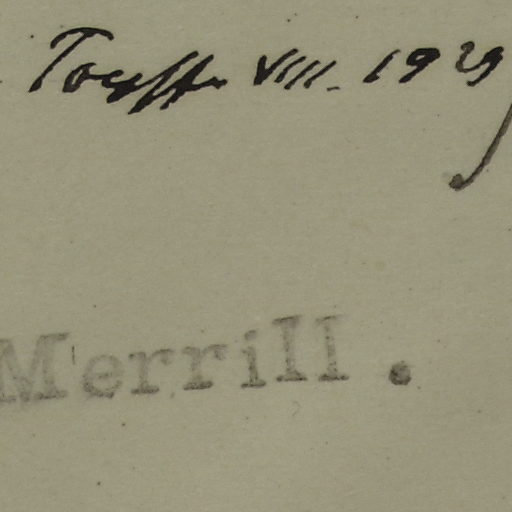 Toepffer VIII. 1929
Merrill.